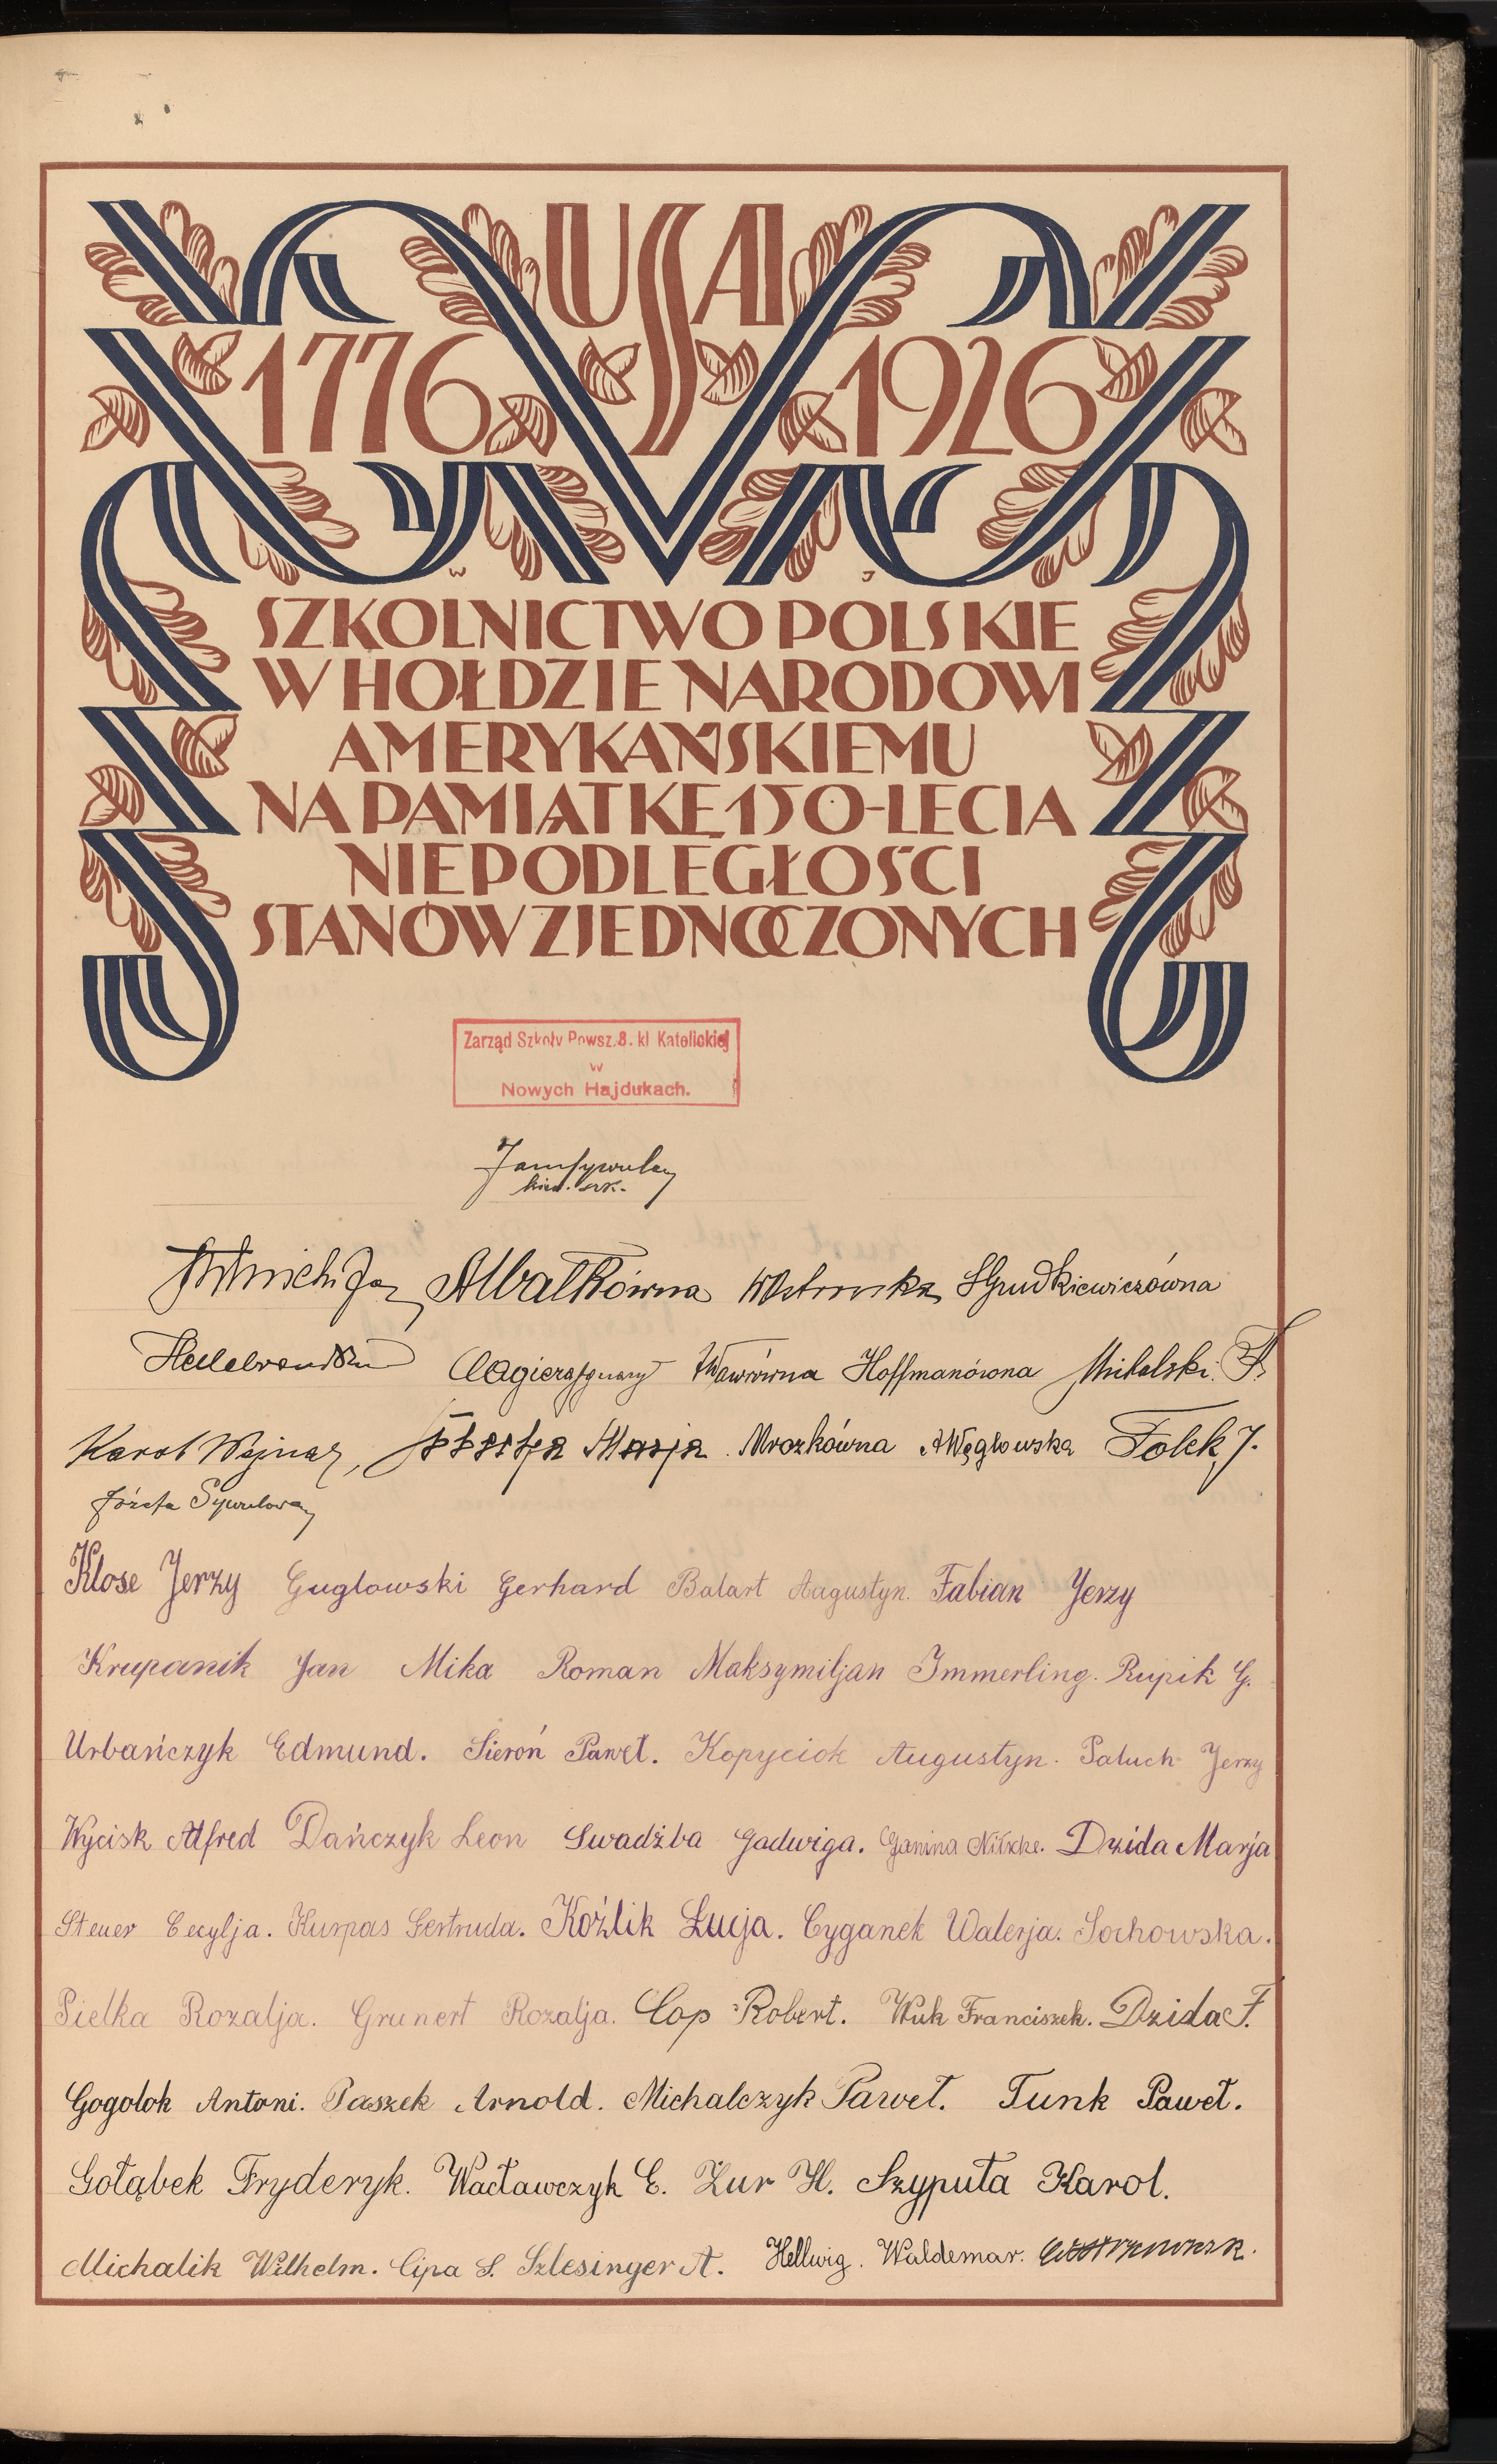 USA
1776 1926
W J
SZKOLNICTWO POLSKIE
W HOŁDZIE NARODOWI
AMERYKAŃSKIEMU
NA PAMIĄTKĘ 150-LECIA
NIEPODLEGŁOŚCI
STANÓW ZJEDNOCZONYCH
Zarząd Szkoły Powsz. 8. kl Katolickiej
w
Nowych Hajdukach.
kier. szk.
Hoffmanówna
Karol Wejnar, Marja Mrozkówna A Węglowska Folek J.
Józefa Sywulowa
Klose Jerzy Guglowski Gerhard Balart Augustyn. Fabian Jerzy
Krupanik Jan Mika Roman Maksymiljan Immerling. Rupik G.
Urbańczyk Edmund. Sieroń Paweł. Kopyciok Augustyn. Paluch Jerzy
Wycisk Alfred Dańczyk Leon Swadźba Jadwiga. Janina Dzida Marja
Steuer Cecylja. Kurpas Gertruda. Koźlik Łucja. Cyganek Walerja. Sochowska.
Pielka Rozalja. Grunert Rozalja. Cop Robert. Wuk Franciszek. Dzida F.
Gogolok Antoni. Paszek Arnold. Michalczyk Paweł. Tunk Paweł.
Gołąbek Fryderyk. Wacławczyk E. Żur H. Szyputa Karol.
Michalik Wilhelm. Cipa S. Szlesinger A. Hellwig. Waldemar.